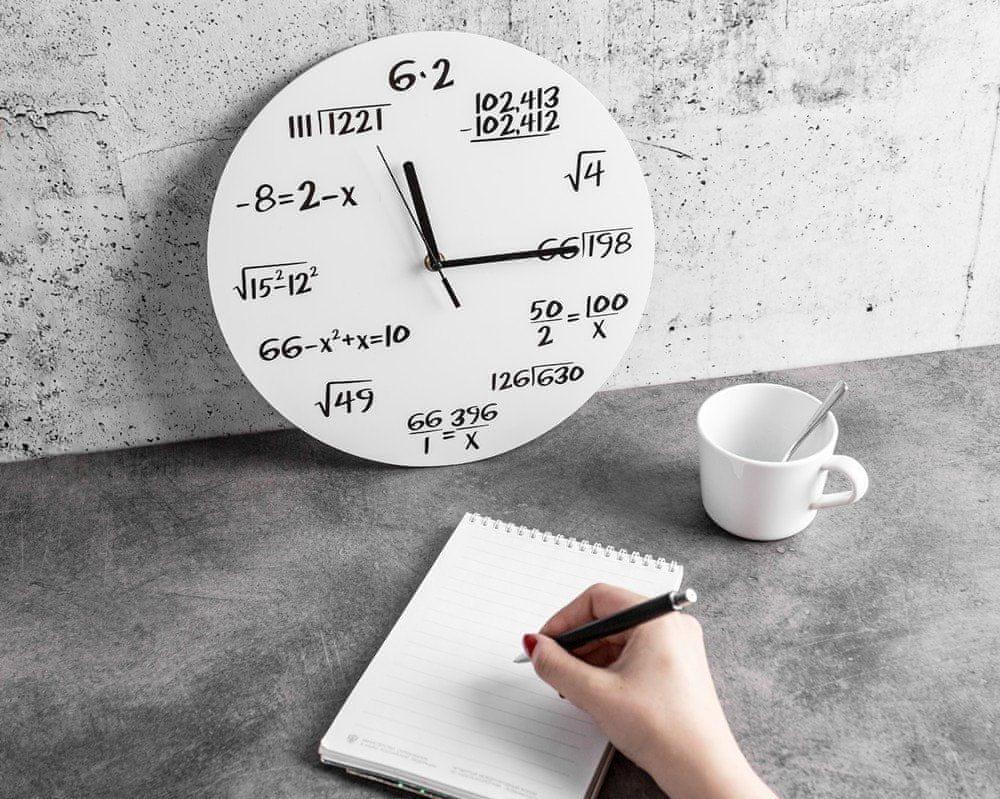 6·2
102,413
-102,412
√4
66⟌198
50/2=100/x
126⟌630
66/1=396/x
√49
66-x²+x=10
√15²-12²
-8=2-x
111⟌1221